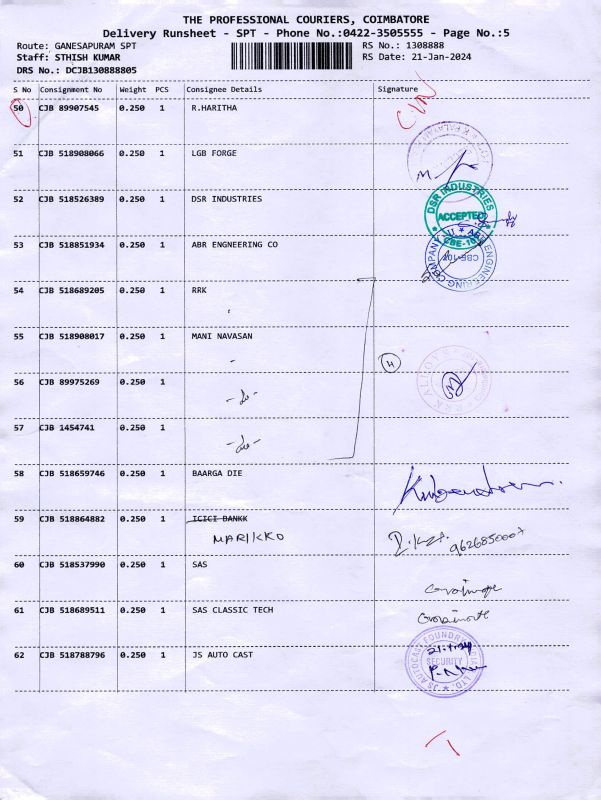 THE PROFESSIONAL COURIERS, COIMBATORE
Delivery Runsheet - SPT - Phone No.:0422-3505555 - Page No.:5
Route: GANESAPURAM SPT RS No.: 1308888
Staff: STHISH KUMAR RS Date: 21-Jan-2024
DRS No.: DCJB130888805
S No Consignment No Weight PCS Consignee Details Signature
50 CJB 89907545 0.250 1 R.HARITHA
51 CJB 518908066 0.250 1 LGB FORGE
52 CJB 518526389 0.250 1 DSR INDUSTRIES DSR INDUSTRIES ACCEPTED
53 CJB 518851934 0.250 1 ABR ENGNEERING CO ENGINEERING COMPANY CBE-107
54 CJB 518689205 0.250 1 RRK
55 CJB 518908017 0.250 1 MANI NAVASAN
4
56 CJB 89975269 0.250 1
57 CJB 1454741 0.250 1
58 CJB 518659746 0.250 1 BAARGA DIE
59 CJB 518864882 0.250 1 ICICI BANKK
MARIKKO
60 CJB 518537990 0.250 1 SAS
61 CJB 518689511 0.250 1 SAS CLASSIC TECH
62 CJB 518788796 0.250 1 JS AUTO CAST JS AUTOCAST FOUNDRY LTD. SECURITY